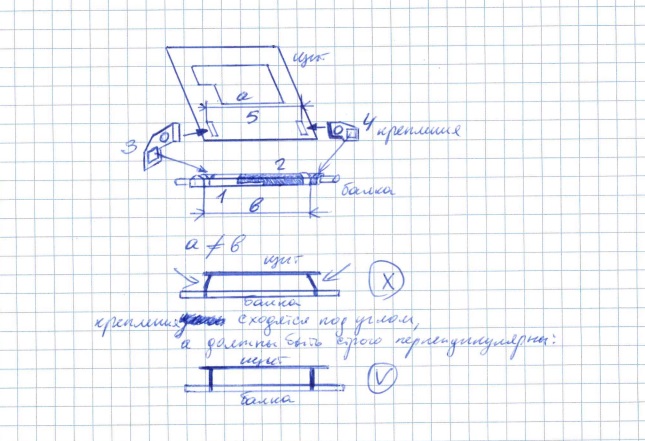 щит
а
5
3
4 крепления
2
балка
1
в
а ≠ в
щит
X
балка
крепления сходятся под углом,
а должны быть строго перпендикулярны:
щит
V
балка